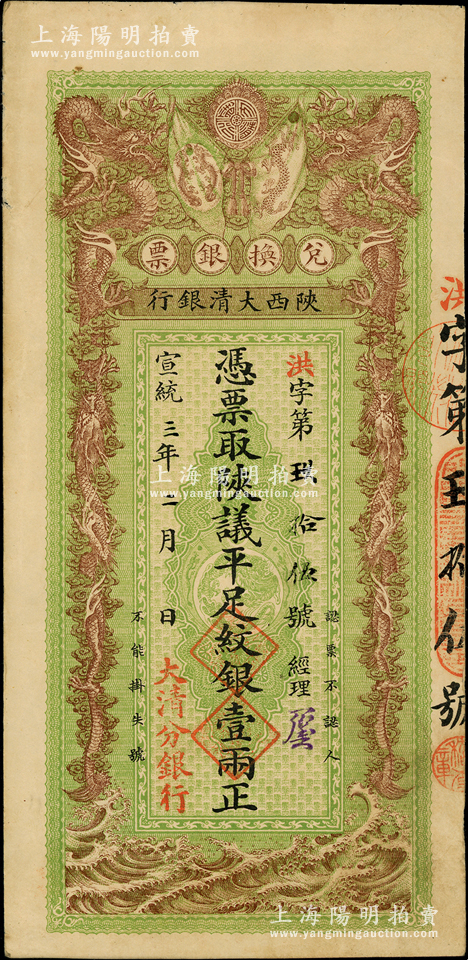 上海陽明拍賣
www.yangmingauction.com
兌換銀票
陝西大清銀行
洪字第玖拾伍號 經理
認票不認人
憑票取陝議平足紋銀壹兩正
宣統三年二月 日
大清分銀行
不能掛失號
洪字第玖拾伍號
上海陽明拍賣
www.yangmingauction.com
上海陽明拍賣
www.yangmingauction.com